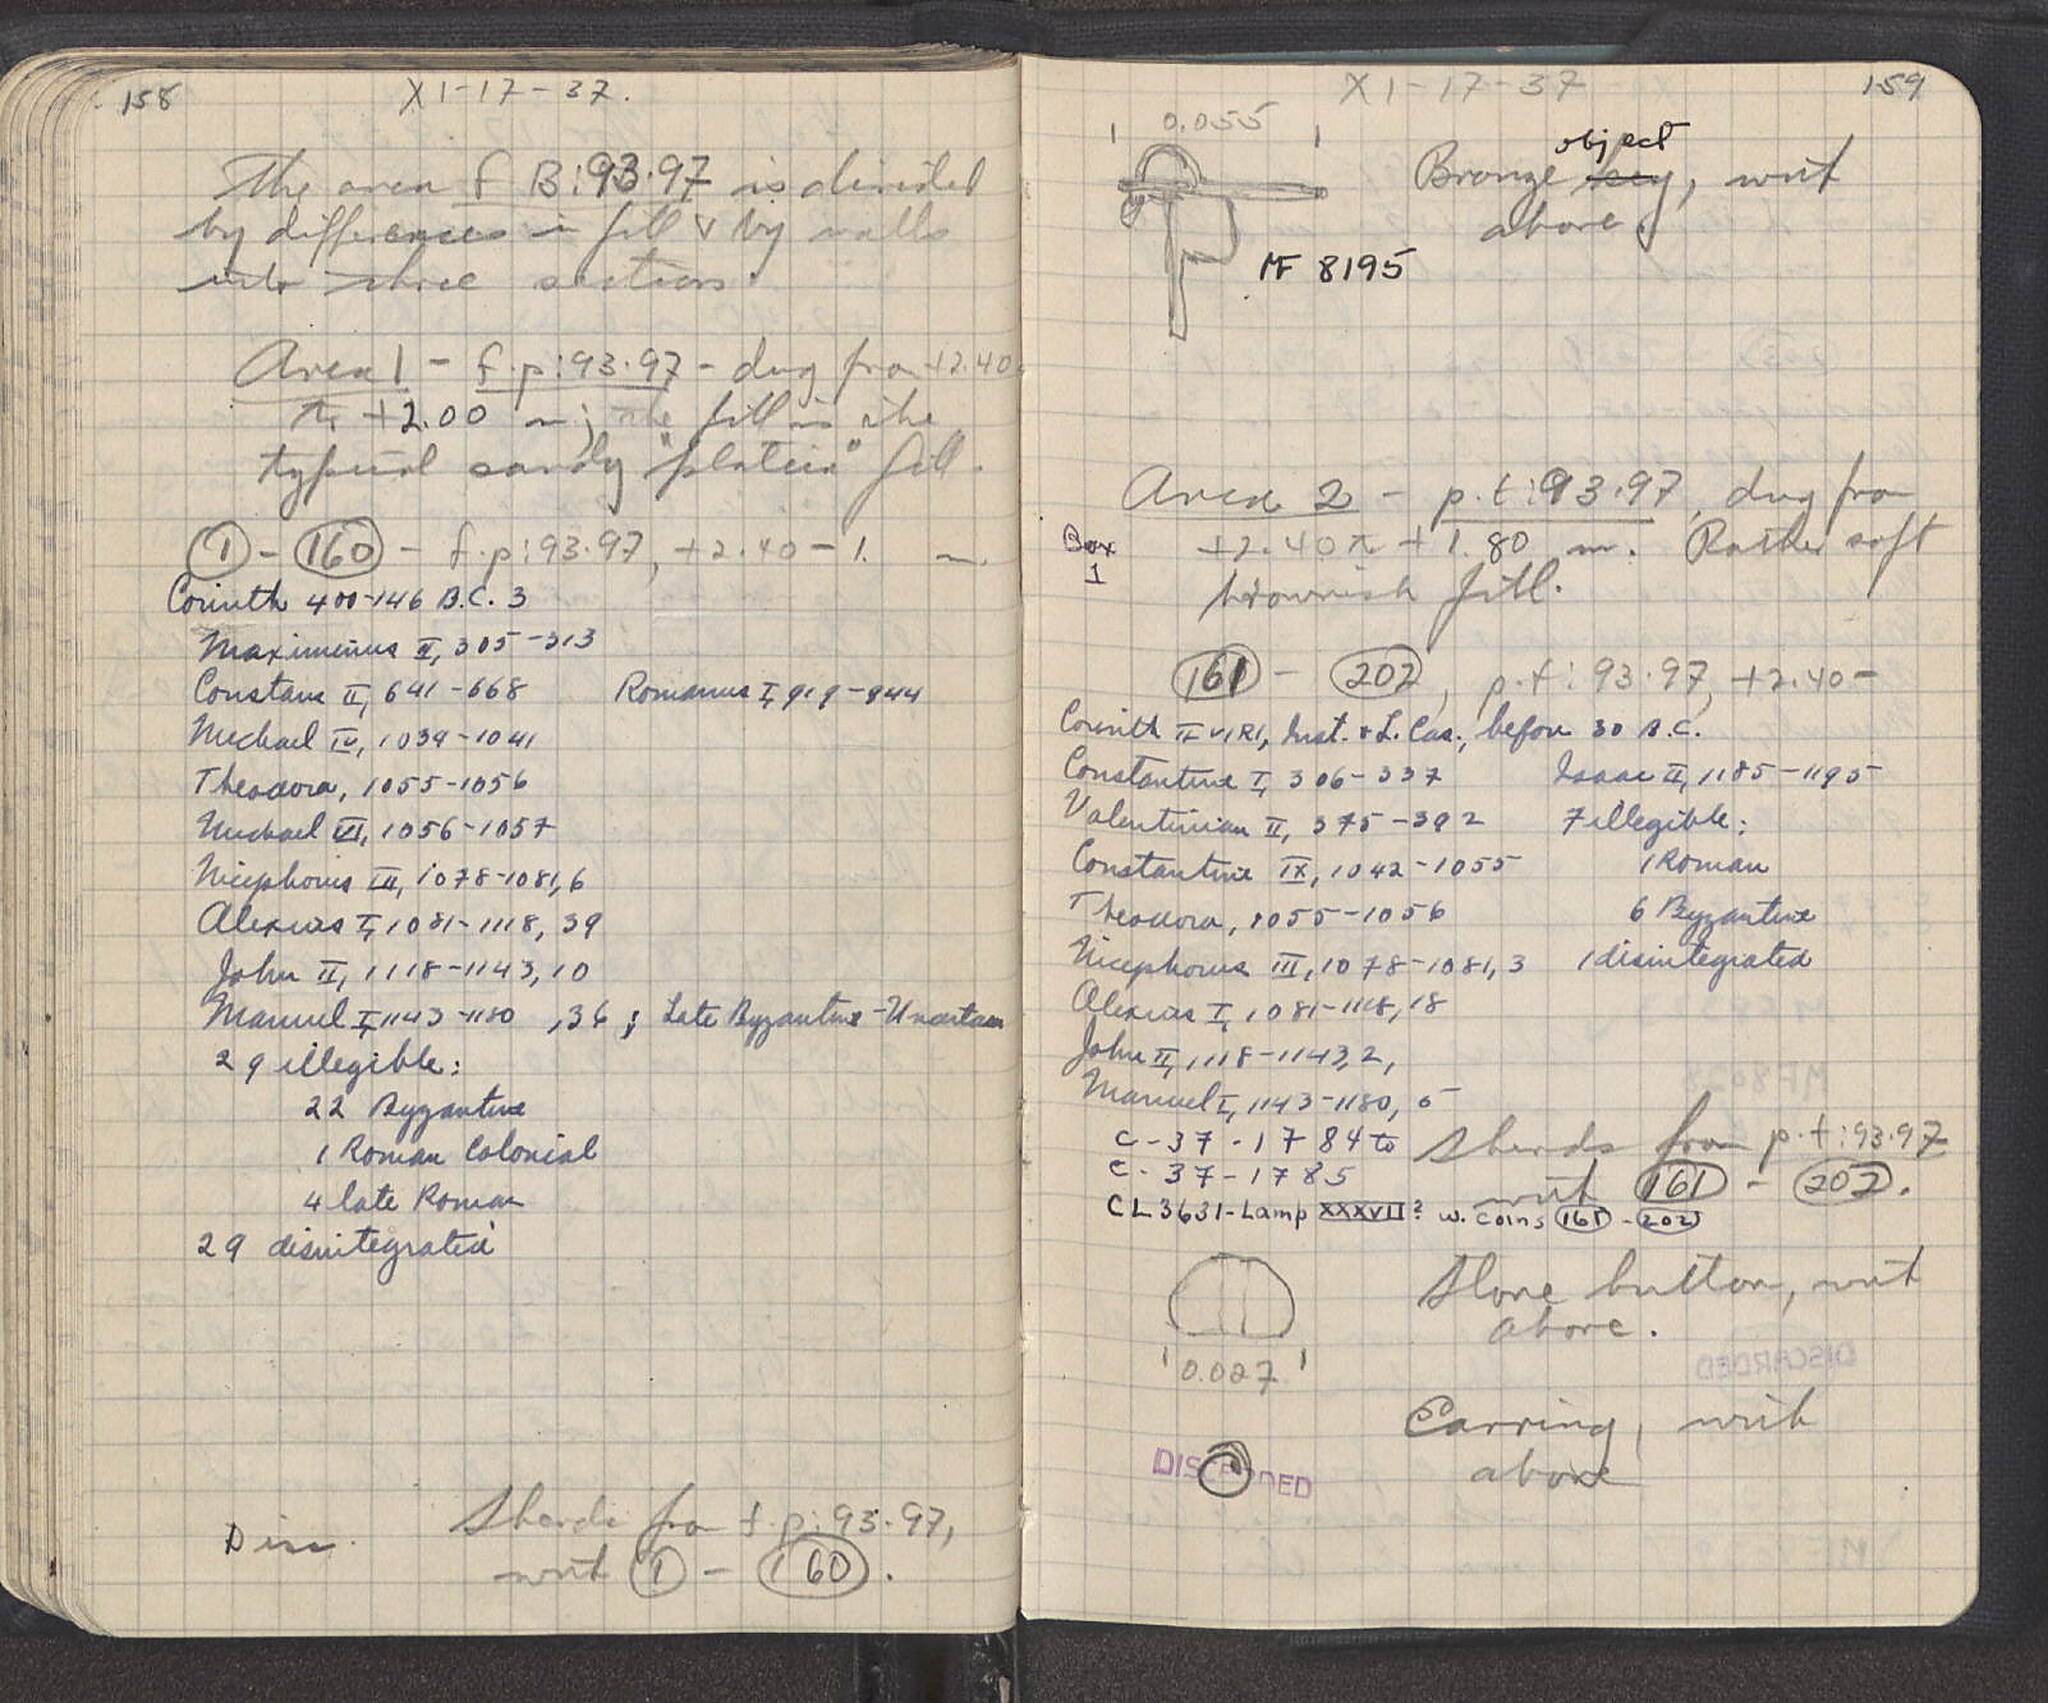 158
XI-17-37.
The area f B:93.97 is divided
by differences in fill & by walls
into three sections.
Area 1 - f.p:93.97 - dug from +2.40
to +2.00 m; the fill is the
typical sandy "plateia" fill.
1 - 160 - f.p:93.97, +2.40 - 1. m.
Corinth 400-146 B.C. 3
Maximinus II, 305-313
Constans II, 641-668 Romanus I, 919-944
Michael IV, 1034-1041
Theodora, 1055-1056
Michael VI, 1056-1057
Nicephorus III, 1078-1081, 6
Alexius I, 1081-1118, 39
John II, 1118-1143, 10
Manuel I, 1143-1180, 36; Late Byzantine-Uncertain
29 illegible:
22 Byzantine
1 Roman Colonial
4 late Roman
29 disintegrated
Disc. Sherds from f.p:93.97,
with 1 - 160.
XI-17-37
159
0.055
Bronze key object, with
above.
MF 8195
Area 2 - p.t:93.97, dug from
Box 1
+2.40 to +1.80 m. Rather soft
brownish fill.
161 - 202, p.t:93.97, +2.40-
Corinth II VIRI, Inst. & L. Cas., before 30 B.C.
Constantine I, 306-337 Isaac II, 1185-1195
Valentinian II, 375-392 7 illegible:
Constantine IX, 1042-1055 1 Roman
Theodora, 1055-1056 6 Byzantine
Nicephorus III, 1078-1081, 3 1 disintegrated
Alexius I, 1081-1118, 18
John II, 1118-1143, 2,
Manuel I, 1143-1180, 5
C-37-1784 to Sherds from p.t:93.97
C-37-1785 with 161 - 202.
CL 3631-Lamp XXXVII? w. coins 161 - 202
Stone button, with
above.
0.027
Earring, with
above
DISCARDED